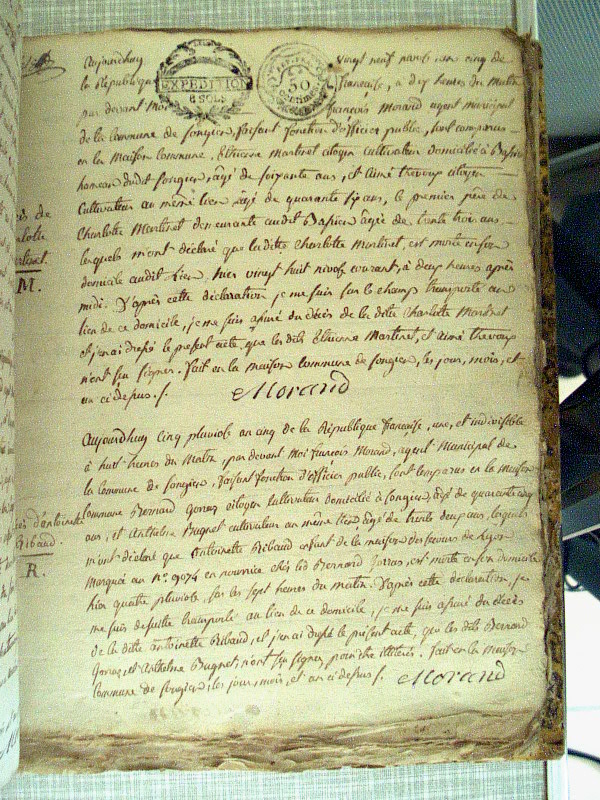 Aujourdhuy vingt neuf nivose, an cinq de
EXPEDITION
6 SOLS
50
la République française, a dix heures du Matin
par devant Moi françois Morand agent municipal
de la commune de songieu, faisant fonction d'officier public, sont comparus
en la Maison Commune, Etienne Martinet citoyen cultivateur domicilié à
hameau dudit songieu, agé de soixante ans, et aimé trevoux citoyen
Cultivateur au même lieu agé de quarante six ans, le premier père de
Charlotte Martinet demeurante audit agée de trente trois ans
lesquels m'ont déclaré que ladite Charlotte Martinet, est morte en son
domicile audit Lieu, hier vingt huit nivose courant, à deux heures après
midi. D'après cette déclaration je me suis sur le champ transporté au
lieu de ce domicile, je me suis assuré du décès de la dite Charlotte Martinet
et j'en ai dressé le présent acte, que les dits Etienne Martinet, et aimé trevoux
n'ont su signer. fait en la maison commune de songieu, les jour, mois, et
an ci depus.
Morand
M.
Aujourdhuy cinq pluviose an cinq de la République française, une, et indivisible
à huit heures du Matin, par devant Moi françois Morand, agent Municipal de
la commune de songieu, faisant fonction d'officier public, sont comparus en la Maison
commune Bernard citoyen cultivateur domicilié à songieu, agé de quarante cinq
ans, et Anthelme Bugnet cultivateur au même lieu agé de trente deux ans, lesquels
m'ont déclaré que Antoinette Ribaud enfant de la maison des secours de Lyon
Marquée au N°. 9074 en nourrice chés led Bernard, est morte en son domicile
hier quatre pluviose, sur les sept heures du matin. D'après cette déclaration, je
me suis de suitte transporté au lieu de ce domicile, je me suis assuré du décès
de la dite antoinette Ribaud, et j'en ai dressé le présent acte, que les dits Bernard
et Anthelme Bugnet, n'ont su signer pour être illiterés. fait en la maison
commune de songieu, les jour, mois, et an ci depus.
Morand
d'antoinette
Ribaud.
R.